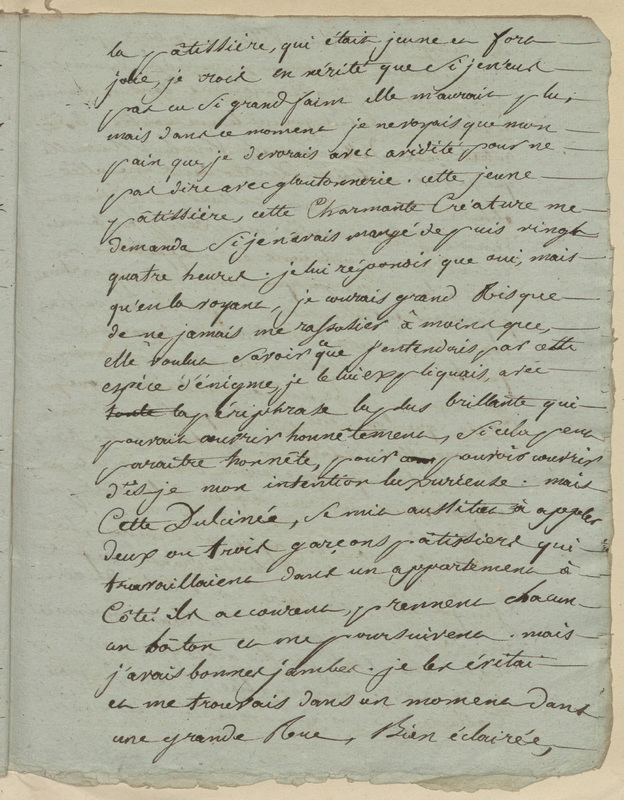 la pâtissière, qui était jeune et fort
jolie, je crois en vérité que si je n'eus
pas eu si grand faim elle m'aurait plu;
mais dans ce moment je ne voyais que mon
pain que je devorais avec avidité pour ne
pas dire avec gloutonnerie. cette jeune
pâtissière, cette Charmante Créature me
demanda si je n'avais mangé depuis vingt
quatre heures. je lui répondis que oui, mais
qu'en la voyant, je courais grand Risque
de ne jamais me rassasier à moins que,
elle voulut savoir ce que j'entendais par cette
espèce d'énigme, je le lui expliquais, avec
toute la périphrase la plus brillante qui
pourait couvrir honnêtement, si cela peut
paraître honnête, pour pouvoir couvrir
dis je mon intention luxurieuse. mais
Cette Dulcinée, se mit aussitot à appeler
deux ou trois garçons pâtissiers qui
travaillaient dans un appartement à
Côté. ils accourent, prennent chacun
un bâton et me poursuivent. mais
j'avais bonnes jambes. je les évitai
et me trouvais dans un moment dans
une grande Rue, Bien éclairée,